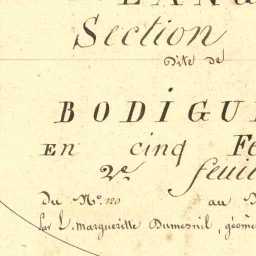 Section
dite de
BODIGU
EN cinq Fe
2e. feuil
Du N°. 120 au
Par L. Marguerette Dumesnil, géom